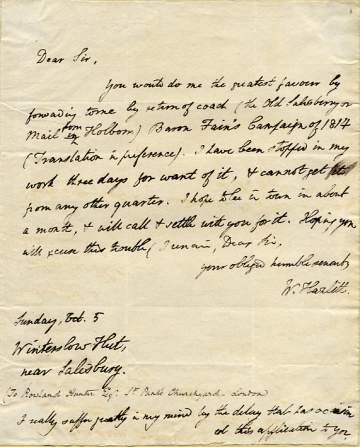 Dear Sir,
You would do me the greatest favour by
forwarding to me by return of coach (the Old Salisbury or
Mail from Holborn) Baron Fain's Campaign of 1814
(Translation in preference). I have been stopped in my
work three days for want of it, & cannot get it
from any other quarter. I hope to be in town in about
a month, & will call & settle with you for it. Hoping you
will excuse this trouble, I remain, Dear Sir,
your obliged humble servant,
W. Hazlitt.
Sunday, Oct. 5
Winterslow Hut,
near Salisbury.
(To Rowland Hunter Esqr. St. Pauls Churchyard London)
I really suffer greatly in my mind by the delay that has occasion
ed this application to you